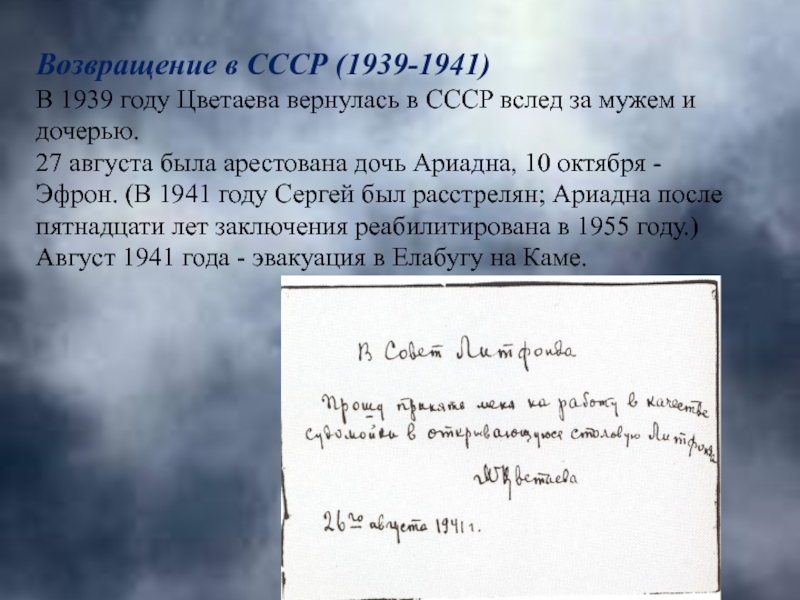 Возвращение в СССР (1939-1941)
В 1939 году Цветаева вернулась в СССР вслед за мужем и
дочерью.
27 августа была арестована дочь Ариадна, 10 октября -
Эфрон. (В 1941 году Сергей был расстрелян; Ариадна после
пятнадцати лет заключения реабилитирована в 1955 году.)
Август 1941 года - эвакуация в Елабугу на Каме.
В Совет Литфонда
Прошу принять меня на работу в качестве
судомойки в открывающуюся столовую Литфонда
МЦветаева
26го августа 1941 г.